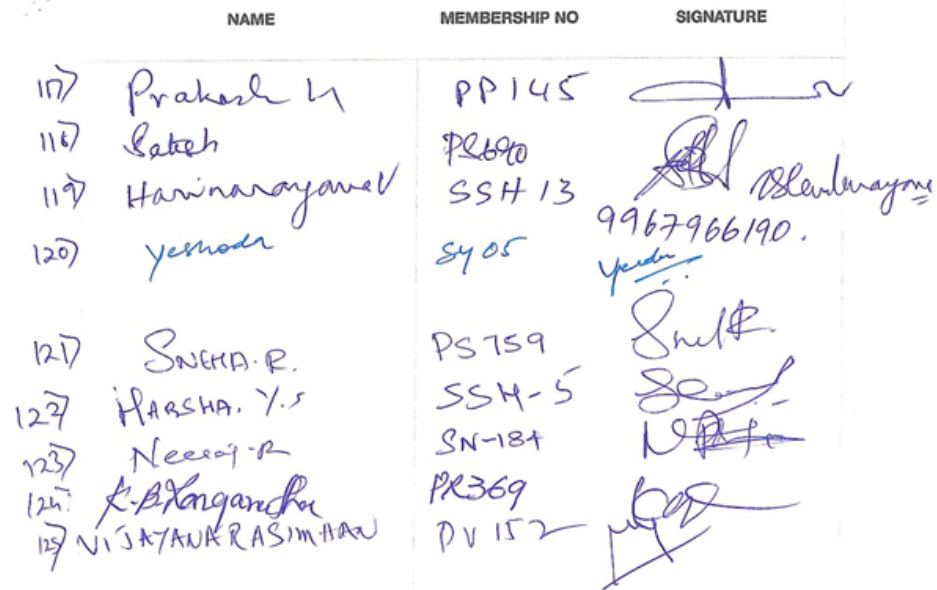 NAME MEMBERSHIP NO SIGNATURE
117) Prakash H PP145
118) Satish PS690
119) Harinarayana V SSH 13
9967966190.
120) Yeshoda SY05
121) SNEHA.R. PS759
122) HARSHA. Y.S SSH-5
123) Neeraj-R SN-184
124. K.B. PR369
125) VIJAYANARASIMHAN PV152